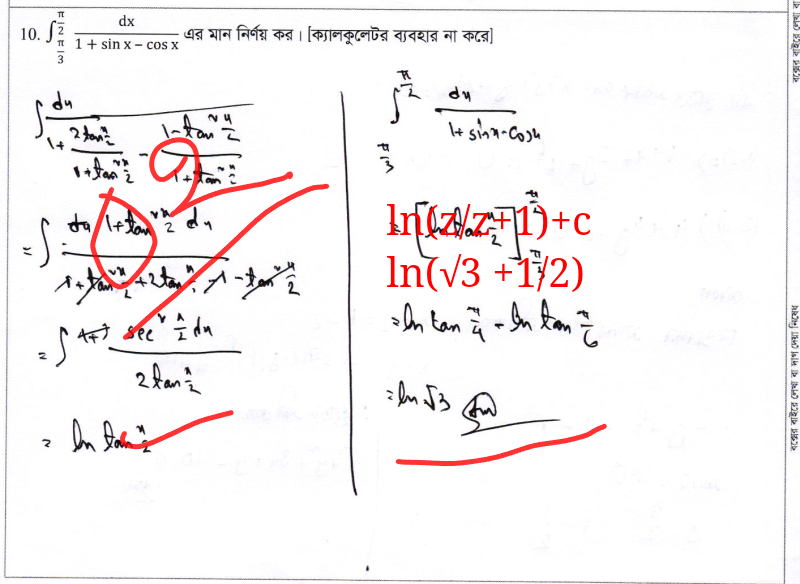 10. ∫_{π/3}^{π/2} dx / (1 + sin x – cos x) এর মান নির্ণয় কর। [ক্যালকুলেটর ব্যবহার না করে]
∫ dx / (1 + 2tan x/2 / (1+tan² x/2) - (1-tan² x/2) / (1+tan² x/2))
= ∫ (1+tan² x/2 dx) / (1+tan² x/2 + 2tan x/2 - 1 - tan² x/2)
= ∫ sec² x/2 dx / (2tan x/2)
= ln tan x/2
∫_{π/3}^{π/2} dx / (1+sinx-cosx)
= [ln tan x/2]_{π/3}^{π/2}
ln(z/z+1)+c
ln(√3 +1/2)
= ln tan π/4 - ln tan π/6
= ln √3
বক্সের বাইরে লেখা বা দাগ দেয়া নিষেধ